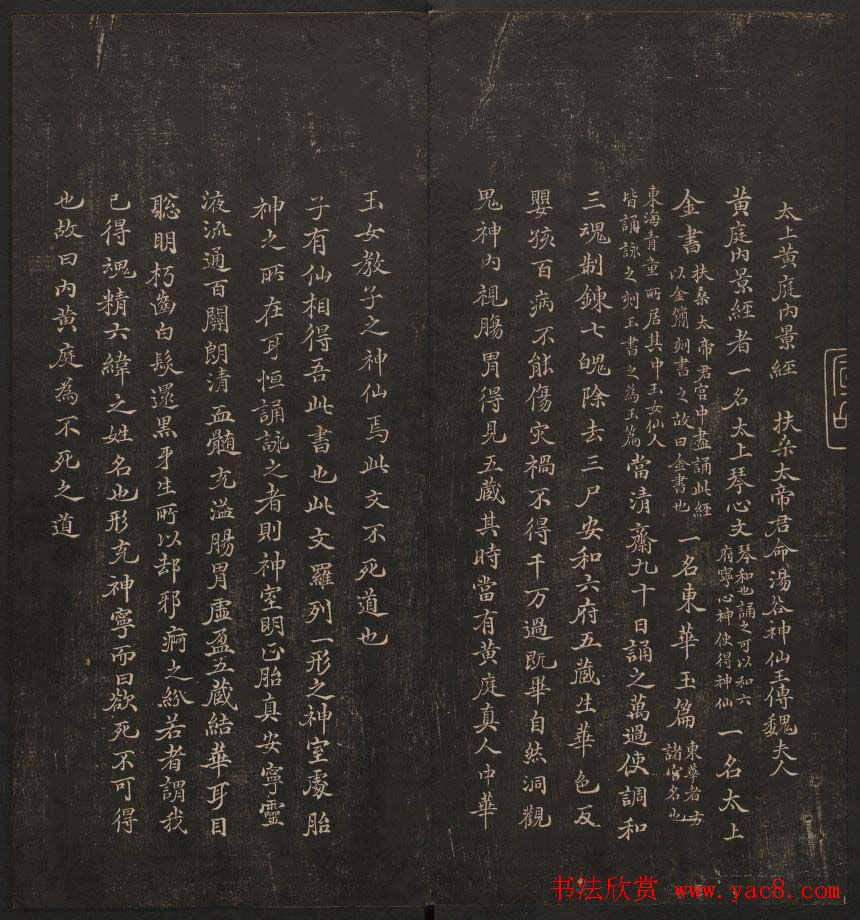 太上黄庭内景經 扶桒太帝君命湯谷神仙王傳魏夫人
黄庭内景經者一名太上琴心文琴和也誦之可以和六府寧心神使得神仙一名太上
金書扶桑太帝君宫中盡誦此經以金簡刻書之故曰金書也一名東華玉篇東華者方諸宫名也
東海青童所居其中玉女仙人皆誦詠之刻玉書之為玉篇當清齋九十日誦之萬過使調和
三魂制鍊七魄除去三尸安和六府五蔵生華色反
嬰孩百病不能傷灾禍不得干万過既畢自然洞觀
鬼神内視腸胃得見五蔵其時當有黄庭真人中華
玉女教子之神仙焉此文不死道也
子有仙相得吾此書也此文羅列一形之神室處胎
神之所在耳恒誦詠之者則神室明正胎真安寧靈
液流通百關朗清血髓充溢腸胃虛盈五蔵結華耳目
聡明朽齒白髮還黒牙生所以却邪痾之紛若者謂我
已得魂精六緯之姓名也形充神寧而曰欲死不可得
也故曰内黄庭為不死之道
书法欣赏 www.yac8.com